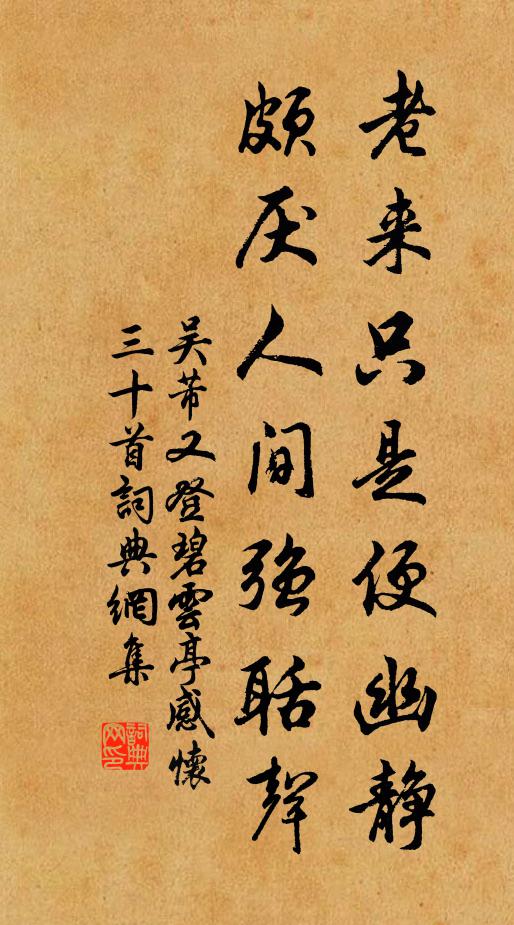 老来只是便幽静
颇厌人间强聒声
吴芾又登碧雲亭感懷
三十首詞典網集
詞典网印